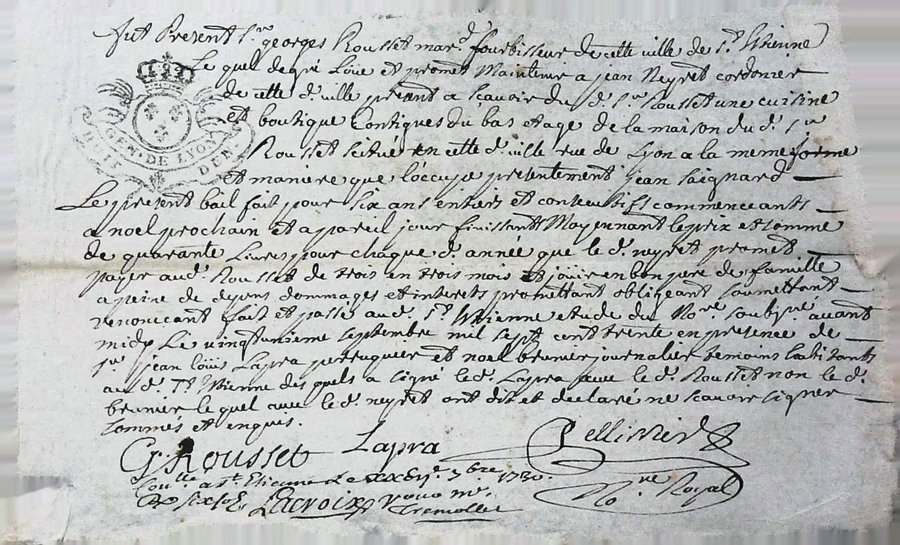 fut Present Sr georges Rousset mard fourbisseur de cette ville de St Etienne
Le quel de gré Loue et promet Maintenir a jean Neyret cordonier
de cette d. ville present a scavoir du d. Sr Rousset une cuisine
et boutique Contigues du bas etage de la maison du d. Sr
Rousset scitué en cette d. ville rue de Lyon a la meme forme
et maniere que l'occupe presentement jean
GEN. DE LYON
Le present bail fait pour six ans entiers et consecutifs commenceants
a noel prochain et a pareil jour finissant Moyennant le prix et somme
de quarante Livres pour chaque d. année que le d. neyret promet
payer aud. Rousset de trois en trois mois et jouir en bon pere de famille
a peine de dommages et interets promettant obligeant soumettant
renonceant fait et passé aud. St Etienne etude du Nore soubné avant
midy Le vingtunieme septembre mil sept cent trente en presence de
Sr jean Louis Lapra perruquier et noel brunier journalier temoins habitants
aud. St Etienne des quels a signé led. Lapra avec le d. Rousset non le d.
brunier le quel avec le d. neyret ont dit et declaré ne scavoir signer
sommés et enquis.
G. Rousset Lapra Pellissier
a St Etienne Le 7bre 1730.
Lacroix No re Royal